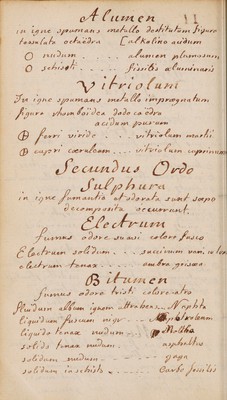 Alumen
11
in igne spumans metallo destitutum figura
tessulata octaëdra [alkalino acidum
nudum ..... alumen plumosum
schisti ..... fissile aluminaris
Vitriolum
In igne spumans metallo impregnatum
figura rhomboidea dodecaëdra
acidum purum
ferri viride .. vitriolum martis
cupri cæruleum .. vitriolum cuprinum
Secundus Ordo
Sulphura
in igne fumantia et odorata sunt sapo
decomposita occurrunt.
Electrum
fumus odore suavi colore fusco
Electrum solidum .... succinum
electrum tenax ..... ambra grisea
Bitumen
fumus odore tristi colore atro
fluidum album ignem attrahens .. Naphta
liquidum fuscum
liquido tenax nudum ... Maltha
solido tenax nudum ... asphaltus
solidum nudum ..... gagas
solidum in schisto ..... Carbo fossilis